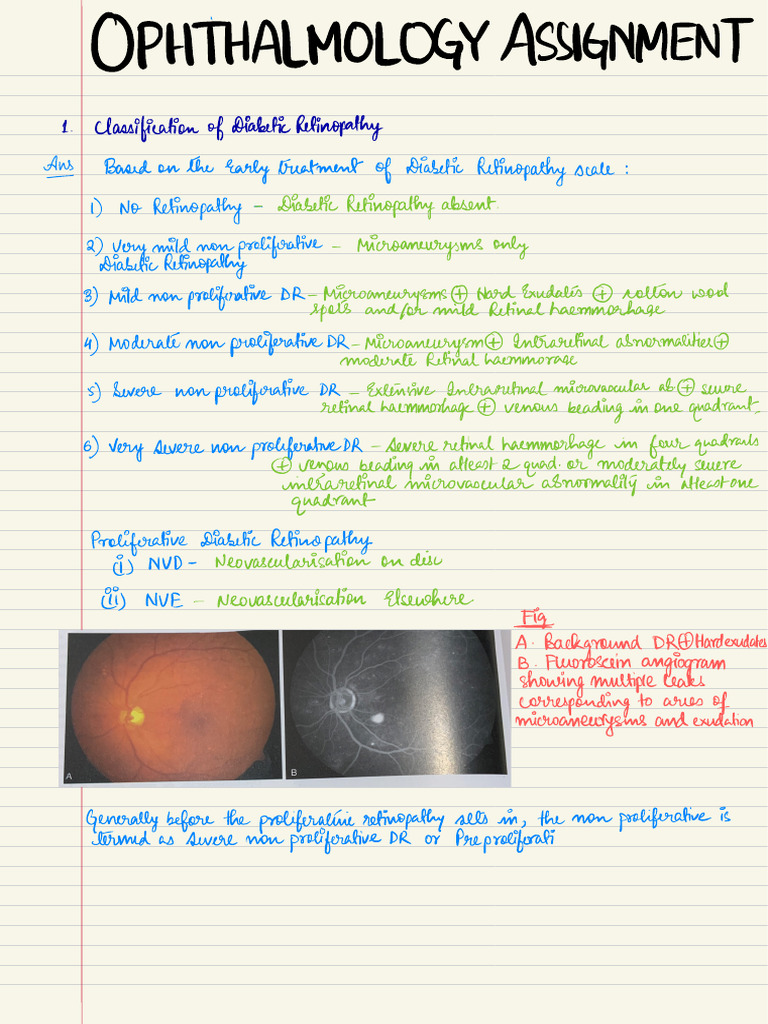 OPHTHALMOLOGY ASSIGNMENT
1. Classification of Diabetic Retinopathy
Ans Based on the Early treatment of Diabetic Retinopathy scale :
1) No Retinopathy – Diabetic Retinopathy absent
2) Very mild non proliferative – Microaneurysms only
Diabetic Retinopathy
3) Mild non proliferative DR – Microaneurysms ⊕ Hard Exudates ⊕ cotton wool
spots and/or mild Retinal haemmorhage
4) Moderate non proliferative DR – Microaneurysm ⊕ Intraretinal abnormalities ⊕
moderate Retinal haemmorage
5) Severe non proliferative DR – Extensive Intraretinal microvascular ab ⊕ severe
retinal haemmorhage ⊕ venous beading in one quadrant.
6) Very severe non proliferative DR – Severe retinal haemmorhage in four quadrants
⊕ venous beading in atleast 2 quad. or moderately severe
intraretinal microvascular abnormality in atleast one
quadrant
Proliferative Diabetic Retinopathy
(i) NVD – Neovascularisation on disc
(ii) NVE – Neovascularisation Elsewhere
Fig
A. Background DR ⊕ Hard exudates
B. Fluoroscein angiogram
showing multiple leaks
corresponding to aries of
microaneurysms and exudation
A
B
Generally before the proliferative retinopathy sets in, the non proliferative is
termed as severe non proliferative DR or Preproliferati